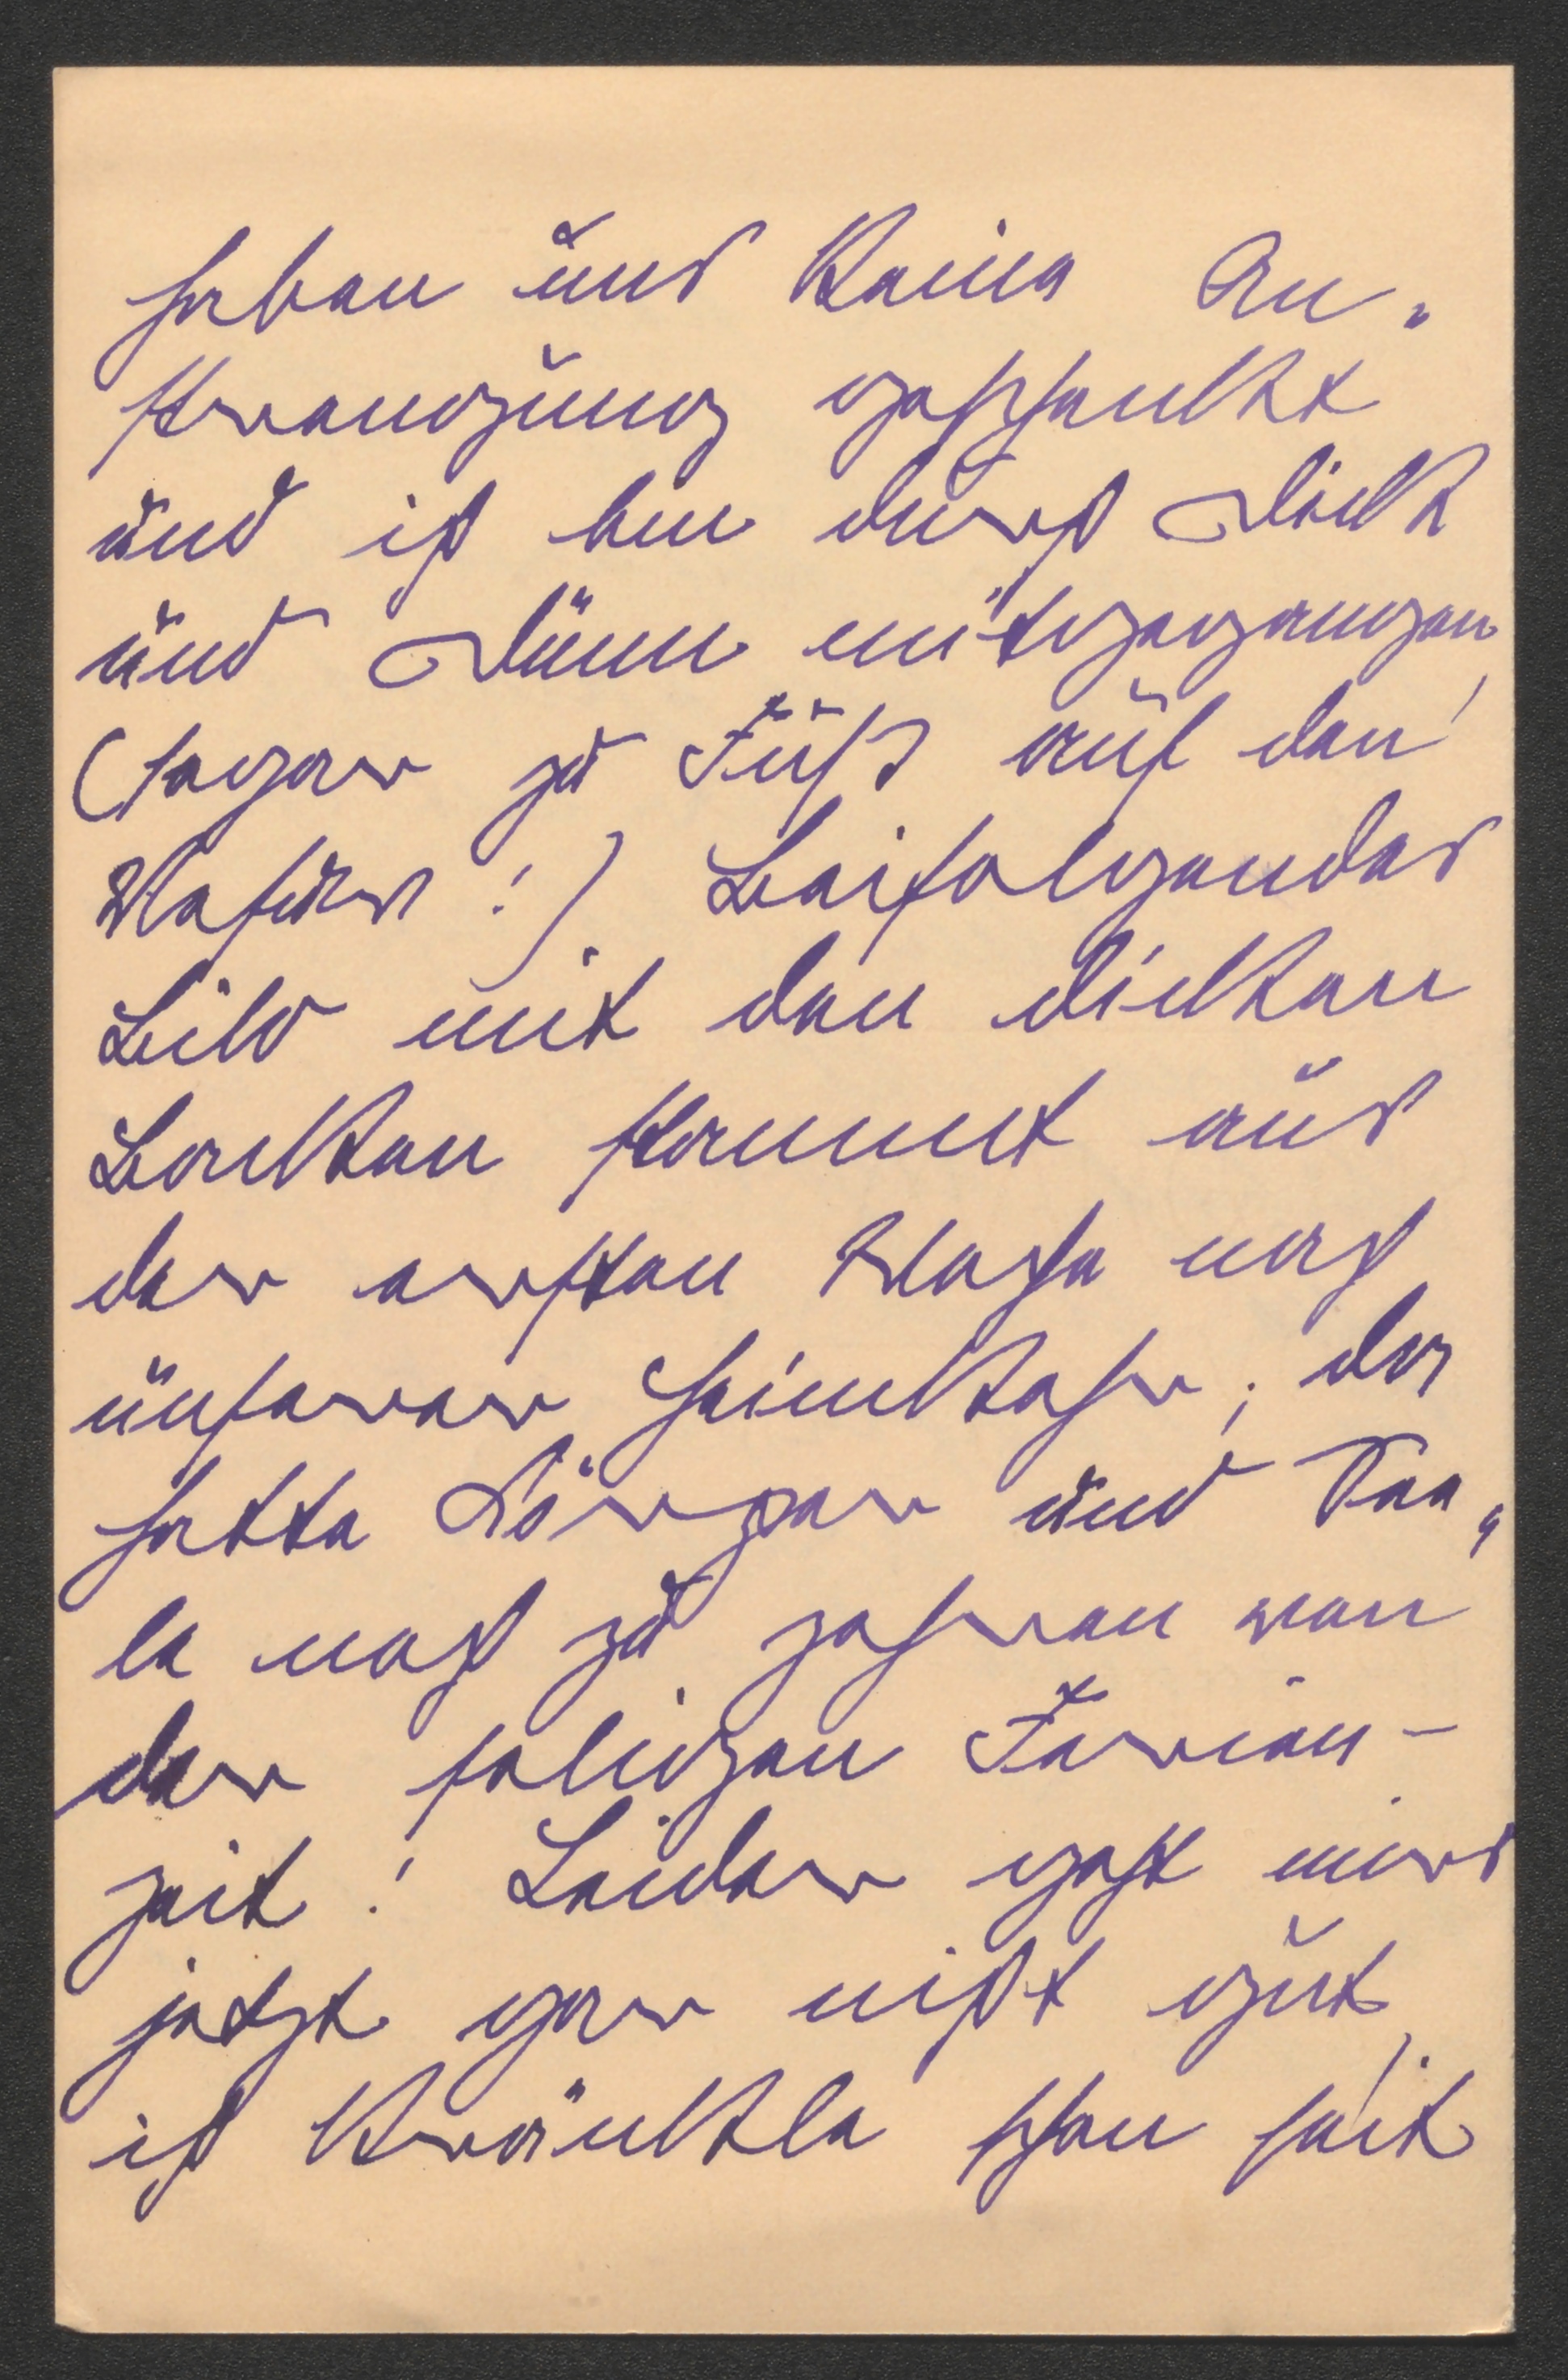 haben uns keine An-
strengung geschenkt
und ich bin durch Dick
und Dünn mitgegangen,
(sogar zu Fuß auf den
Vesuv!) Beifolgendes
Bild mit den dicken
Backen stammt aus
der ersten Woche nach
unserer Heimkehr; da
hatte Körper und See-
le noch zu zehren von
der seligen Ferien-
zeit! Leider geht mirs
jetzt gar nicht gut,
ich kränkle schon seit